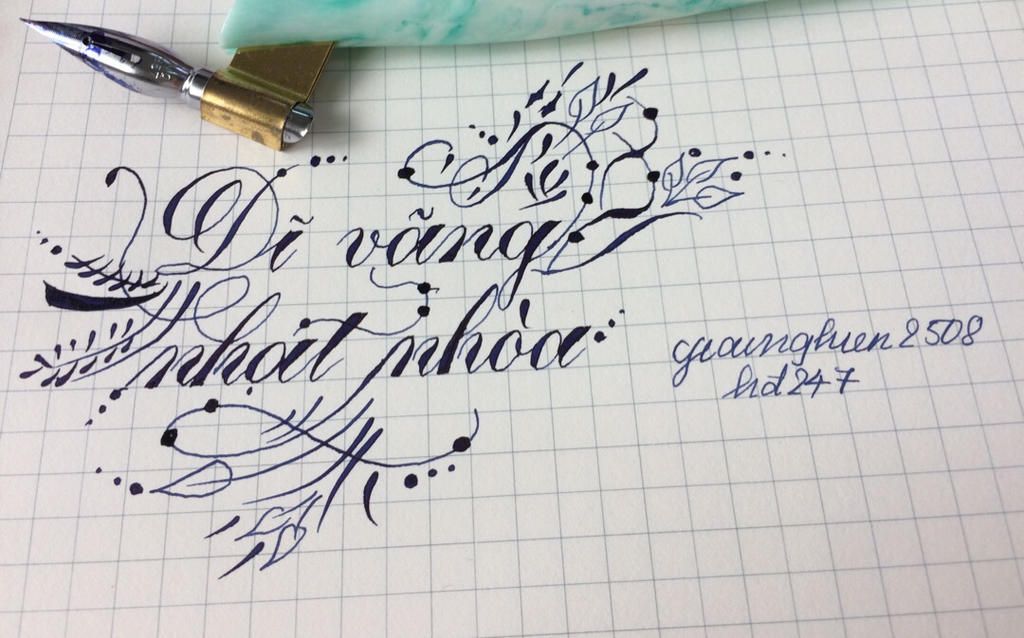 Dĩ vãng
nhạt nhòa
gianghien2508
hd247